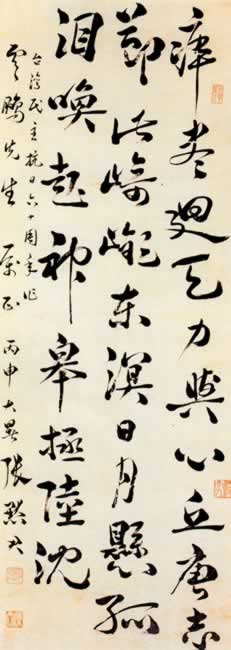 瘁盡迴天力與心丘唐志
節崎東溟日月懸孤
淚喚起神皋極陸沈
台灣民主抗日六十周年作
雲鵬先生 屬正 丙申大暑 張默君